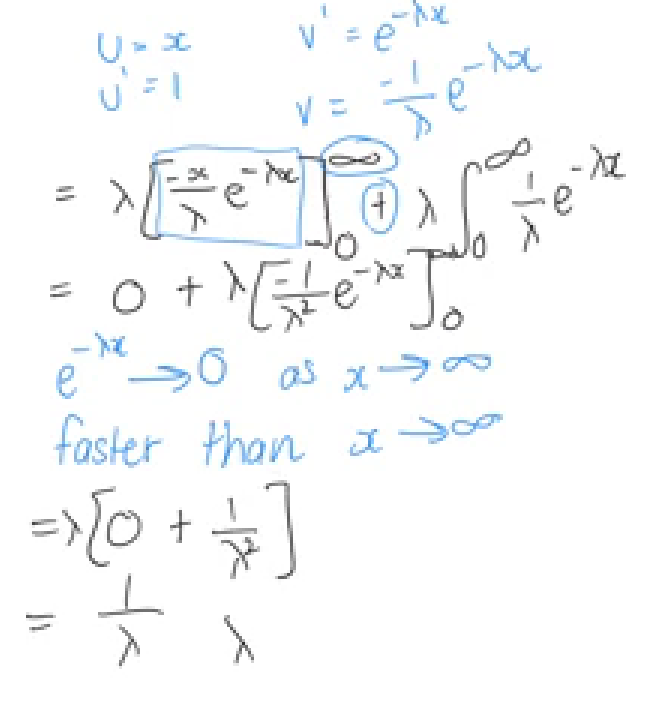 u = x    v' = e^{-λx}
u' = 1    v = -1/λ e^{-λx}
= λ[-x/λ e^{-λx}]_0^∞ + λ∫_0^∞ 1/λ e^{-λx}
= 0 + λ[-1/λ² e^{-λx}]_0^∞
e^{-λx} → 0 as x → ∞
faster than x → ∞
= λ[0 + 1/λ²]
= 1/λ    λ